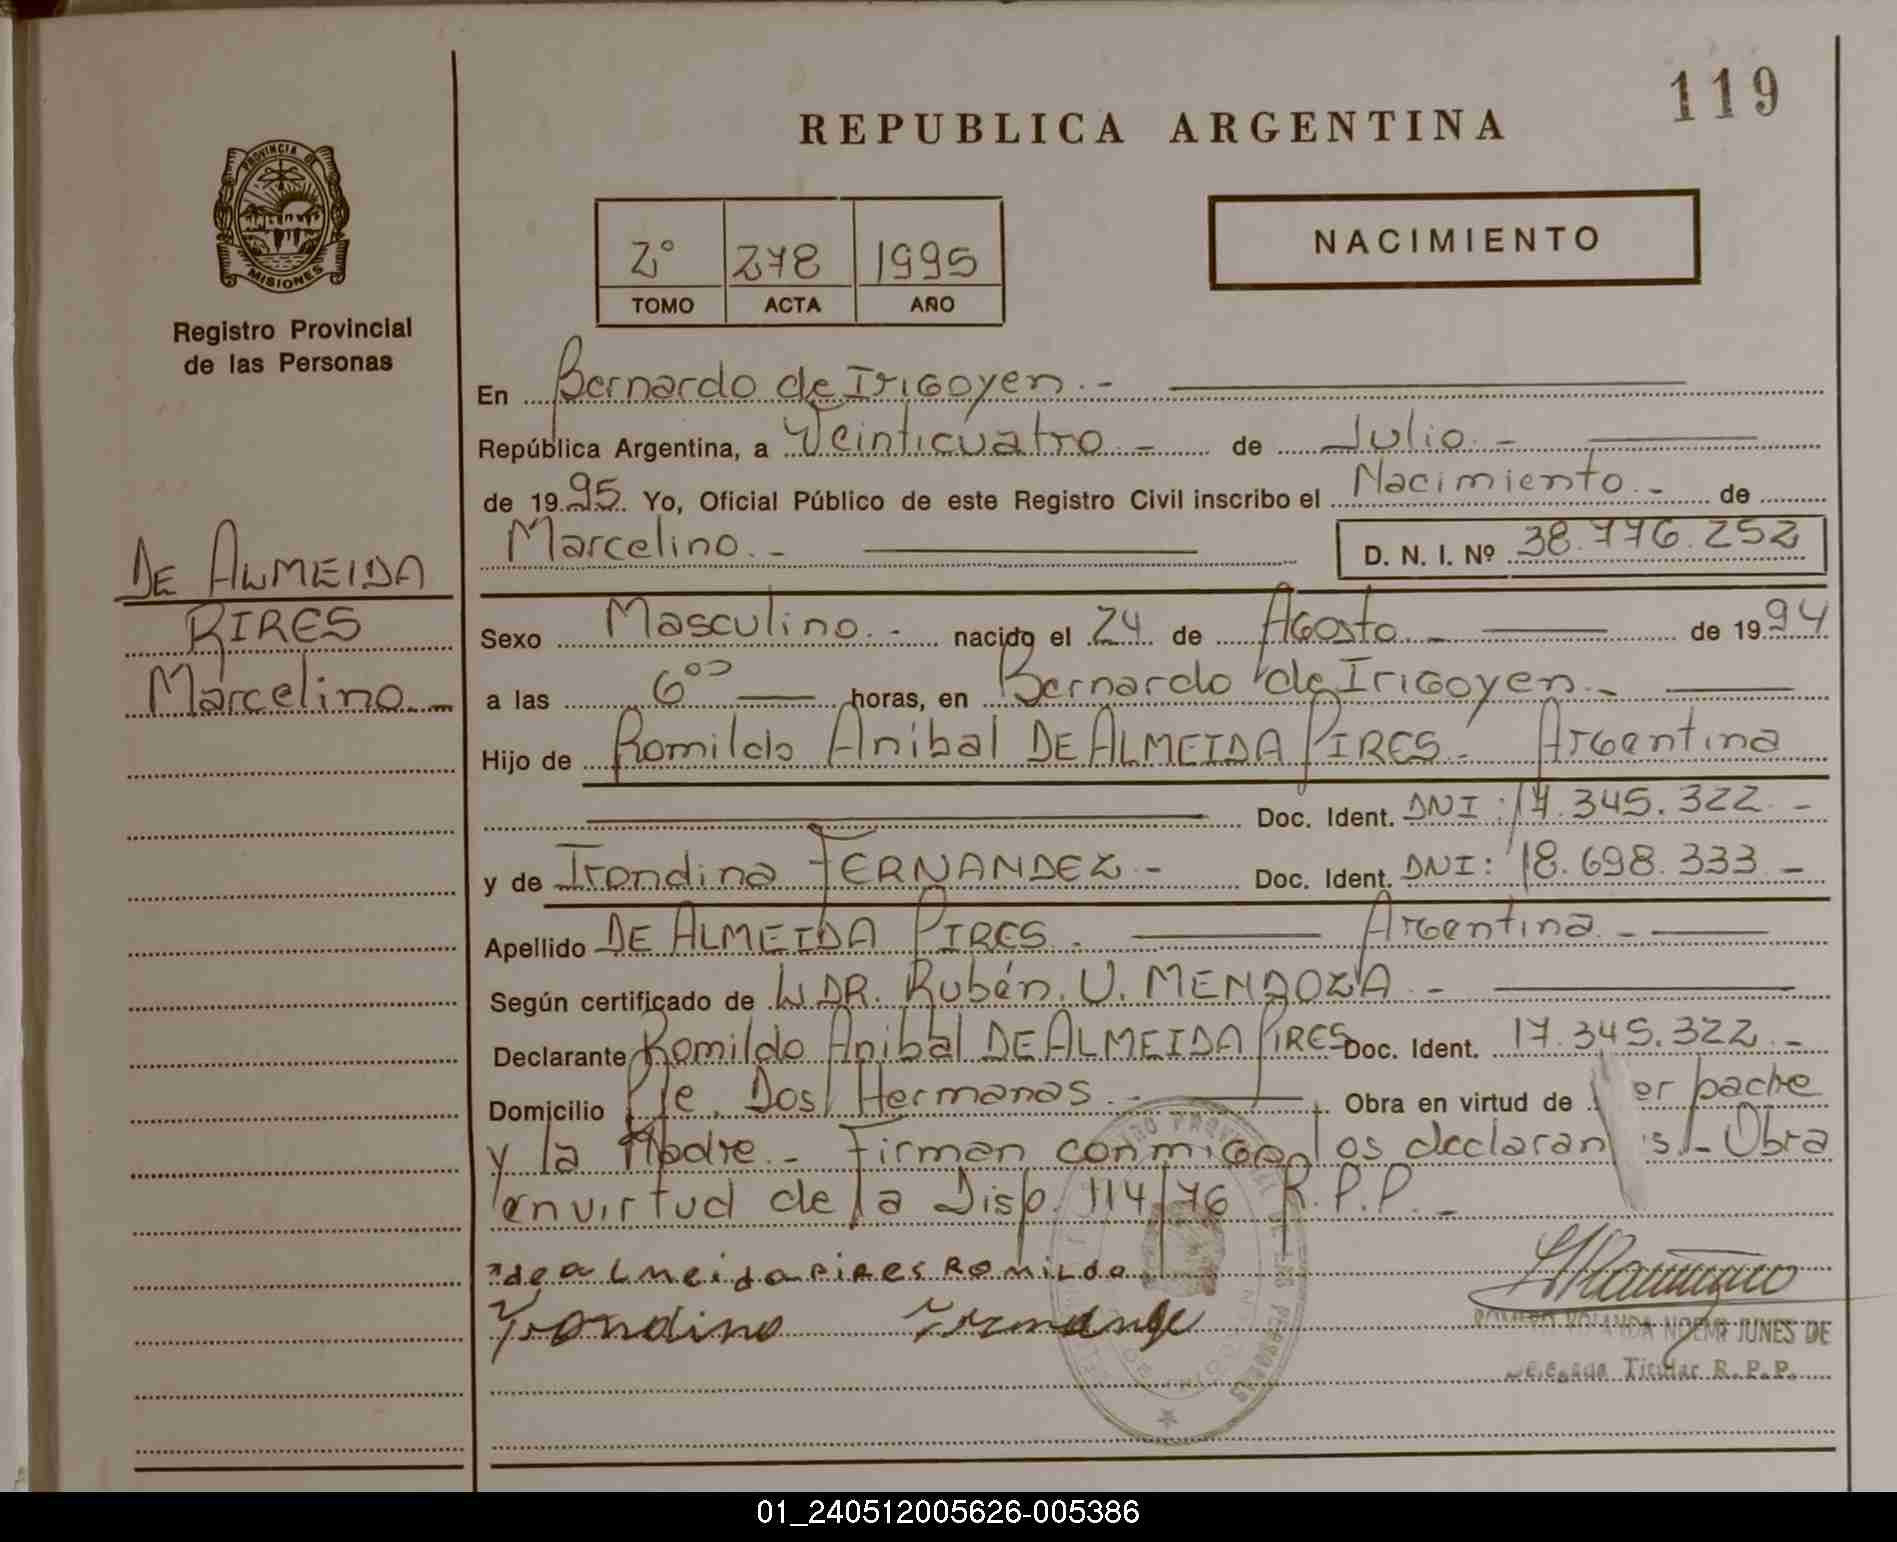 119
REPUBLICA ARGENTINA
PROVINCIA DE
MISIONES
Registro Provincial
de las Personas
2° 278 1995
TOMO ACTA AÑO
NACIMIENTO
En Bernardo de Irigoyen.-
República Argentina, a Veinticuatro - de Julio.-
de 1995. Yo, Oficial Público de este Registro Civil inscribo el Nacimiento.- de
Marcelino.- D. N. I. Nº 38.776.252
DE ALMEIDA
PIRES
Marcelino.-
Sexo Masculino.- nacido el 24 de Agosto - de 1994
a las 6°° horas, en Bernardo de Irigoyen.-
Hijo de Romildo Anibal DE ALMEIDA PIRES.- Argentina
Doc. Ident. DNI: 17.345.322.-
y de Irondina FERNANDEZ.- Doc. Ident. DNI: 18.698.333-
Apellido DE ALMEIDA PIRES.- Argentina.-
Según certificado de DR. Rubén. U. MENDOZA.-
Declarante Romildo Anibal DE ALMEIDA PIRES Doc. Ident. 17.345.322.-
Domicilio Pje. Dos Hermanas.- Obra en virtud de er padre
y la Madre.- Firman conmigo los declaran s.- Obra
en virtud de la Disp. 114/76 R.P.P.-
de almeida PIRES ROMILDO
Irondina
NOEMI JUNES DE
Titular R.P.P.
01_240512005626-005386